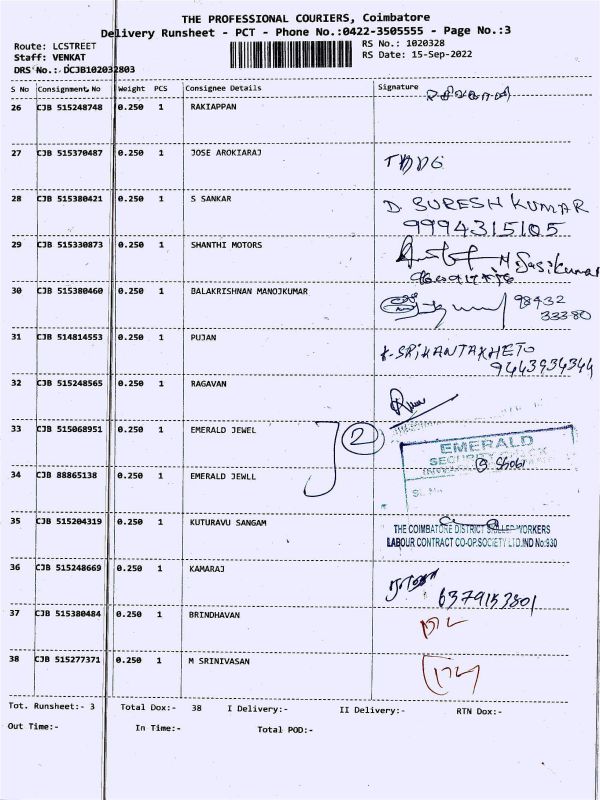 THE PROFESSIONAL COURIERS, Coimbatore
Delivery Runsheet - PCT - Phone No.:0422-3505555 - Page No.:3
Route: LCSTREET
Staff: VENKAT
DRS No.: DCJB102032803
RS No.: 1020328
RS Date: 15-Sep-2022
S No Consignment No Weight PCS Consignee Details Signature
26 CJB 515248748 0.250 1 RAKIAPPAN
27 CJB 515370487 0.250 1 JOSE AROKIARAJ
28 CJB 515380421 0.250 1 S SANKAR D SURESH KUMAR
9994315105
29 CJB 515330873 0.250 1 SHANTHI MOTORS
N. Sasikumar
30 CJB 515380460 0.250 1 BALAKRISHNAN MANOJKUMAR 98432
33380
31 CJB 514814553 0.250 1 PUJAN K-SRIKANTAKHETO
9443934344
32 CJB 515248565 0.250 1 RAGAVAN
33 CJB 515068951 0.250 1 EMERALD JEWEL 2
EMERALD
SECURITY
34 CJB 88865138 0.250 1 EMERALD JEWLL
35 CJB 515204319 0.250 1 KUTURAVU SANGAM THE COIMBATORE DISTRICT SKILLED WORKERS
LABOUR CONTRACT CO-OP.SOCIETY LTD.IND No:930
36 CJB 515248669 0.250 1 KAMARAJ
6379153801
37 CJB 515380484 0.250 1 BRINDHAVAN
38 CJB 515277371 0.250 1 M SRINIVASAN
Tot. Runsheet:- 3 Total Dox:- 38 I Delivery:- II Delivery:- RTN Dox:-
Out Time:- In Time:- Total POD:-